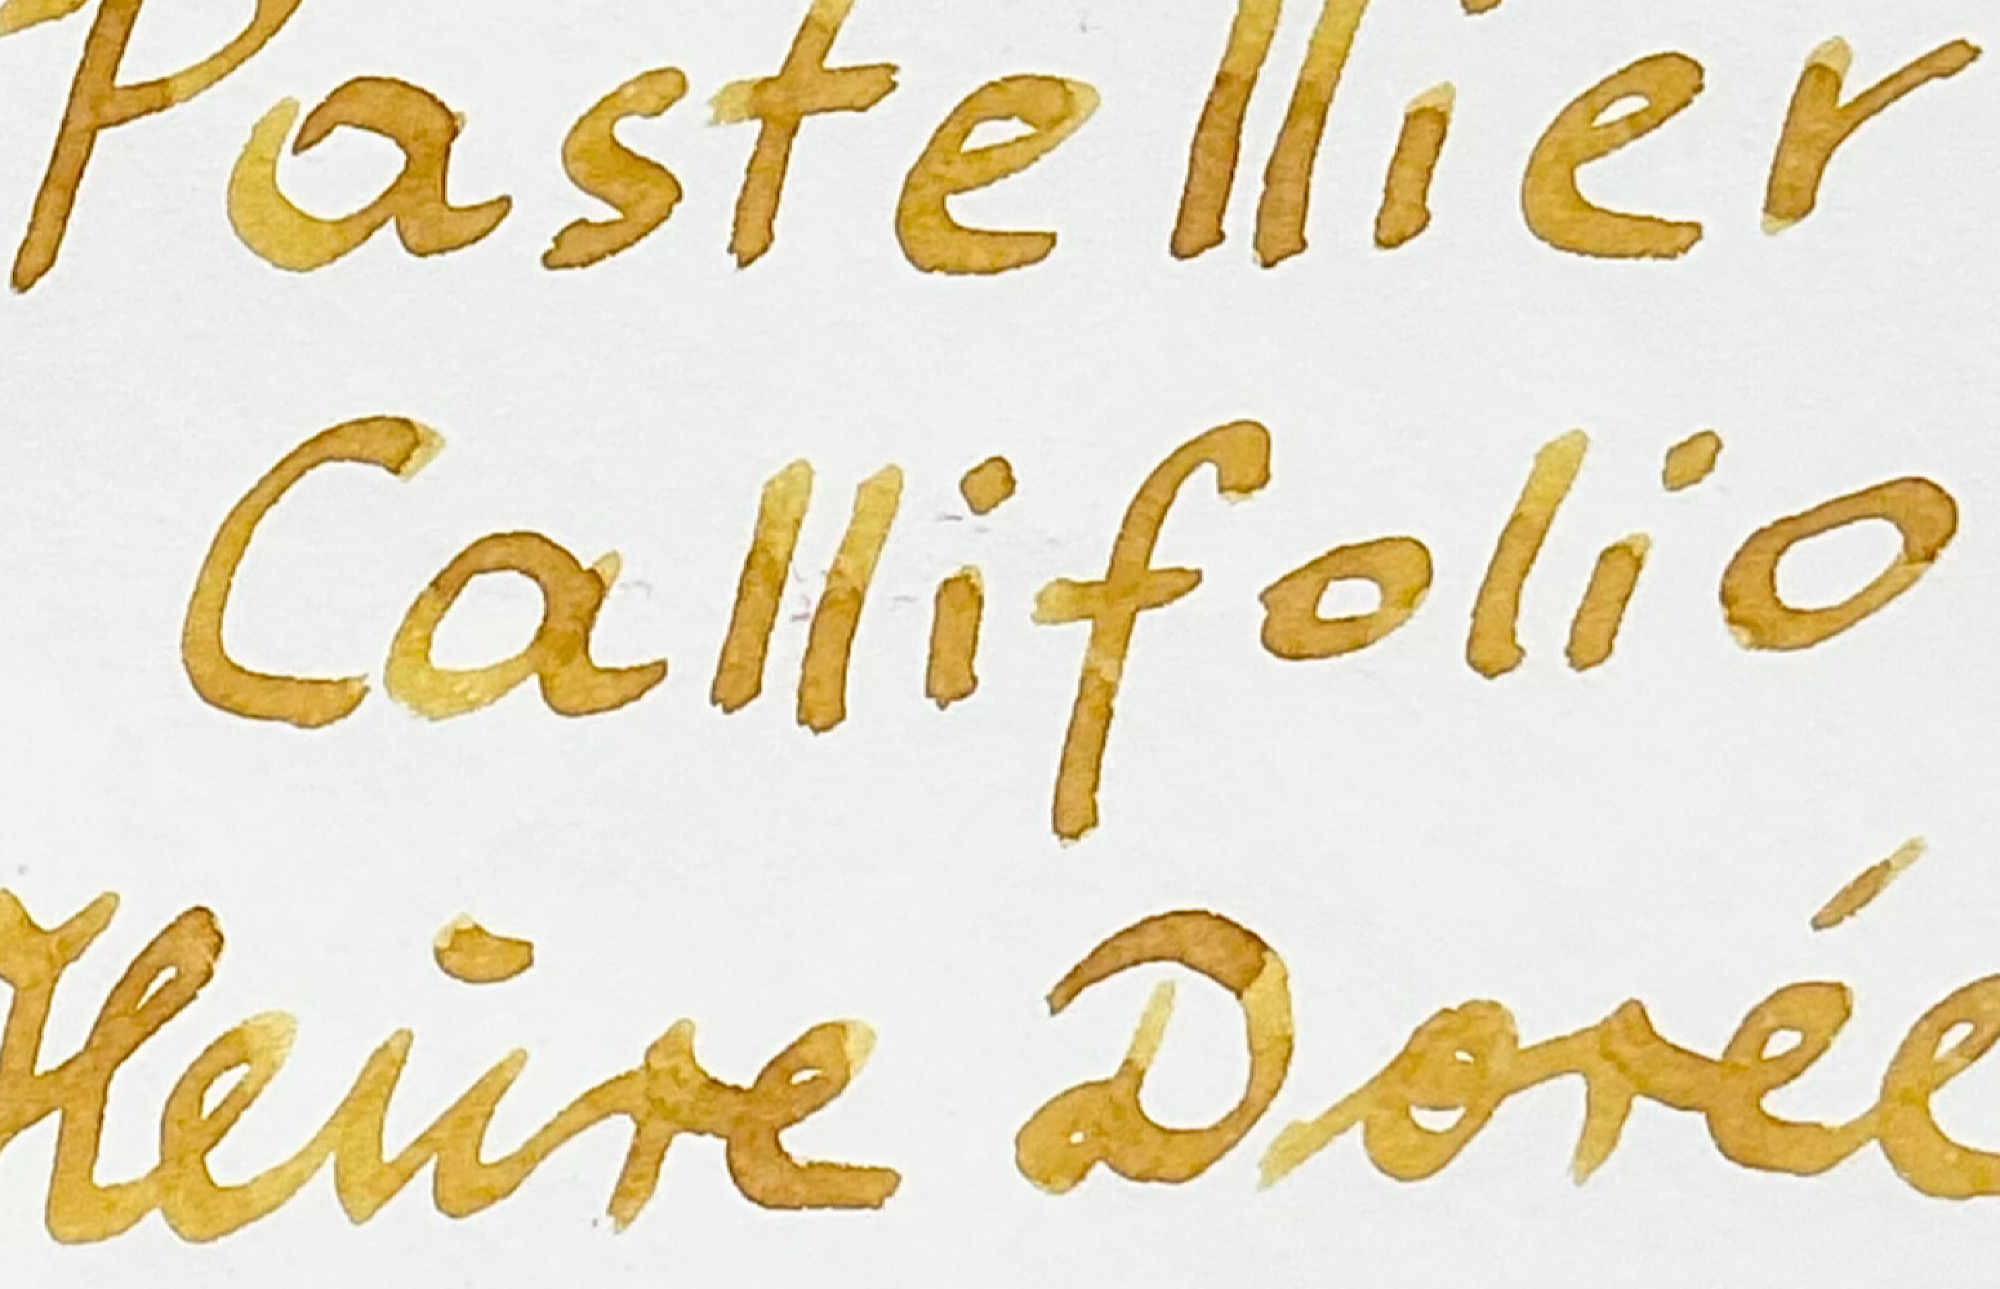 Pastellier
Callifolio
Heure Dorée